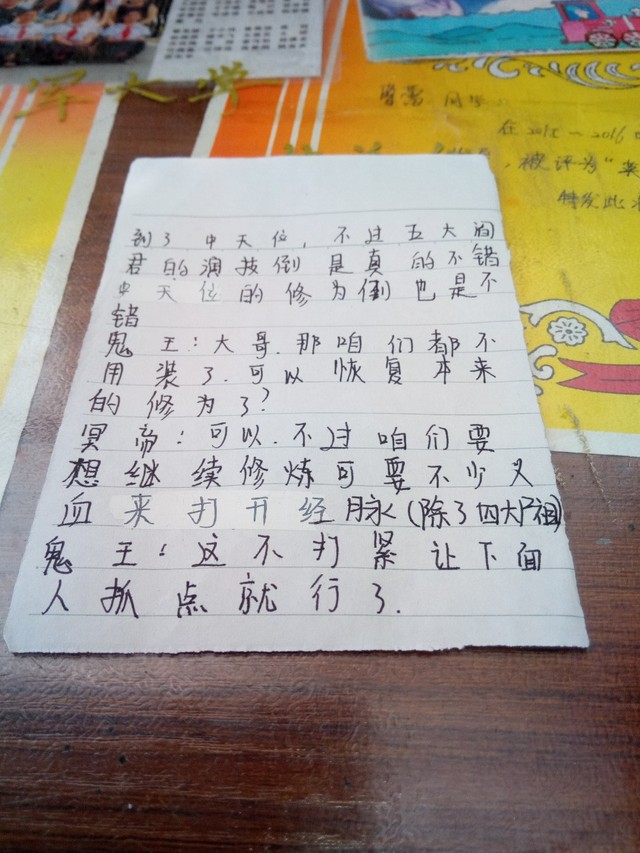 军大学
曾蕾 同学:
在2015~2016
被评为"
特发此
到了中天位，不过五大阎
君的演技倒是真的不错
中天位的修为倒也是不
错
鬼王:大哥.那咱们都不
用装了.可以恢复本来
的修为了?
冥帝:可以.不过咱们要
想继续修炼可要不少人
血来打开经脉(除了四大尸祖)
鬼王:这不打紧让下面
人抓点就行了.